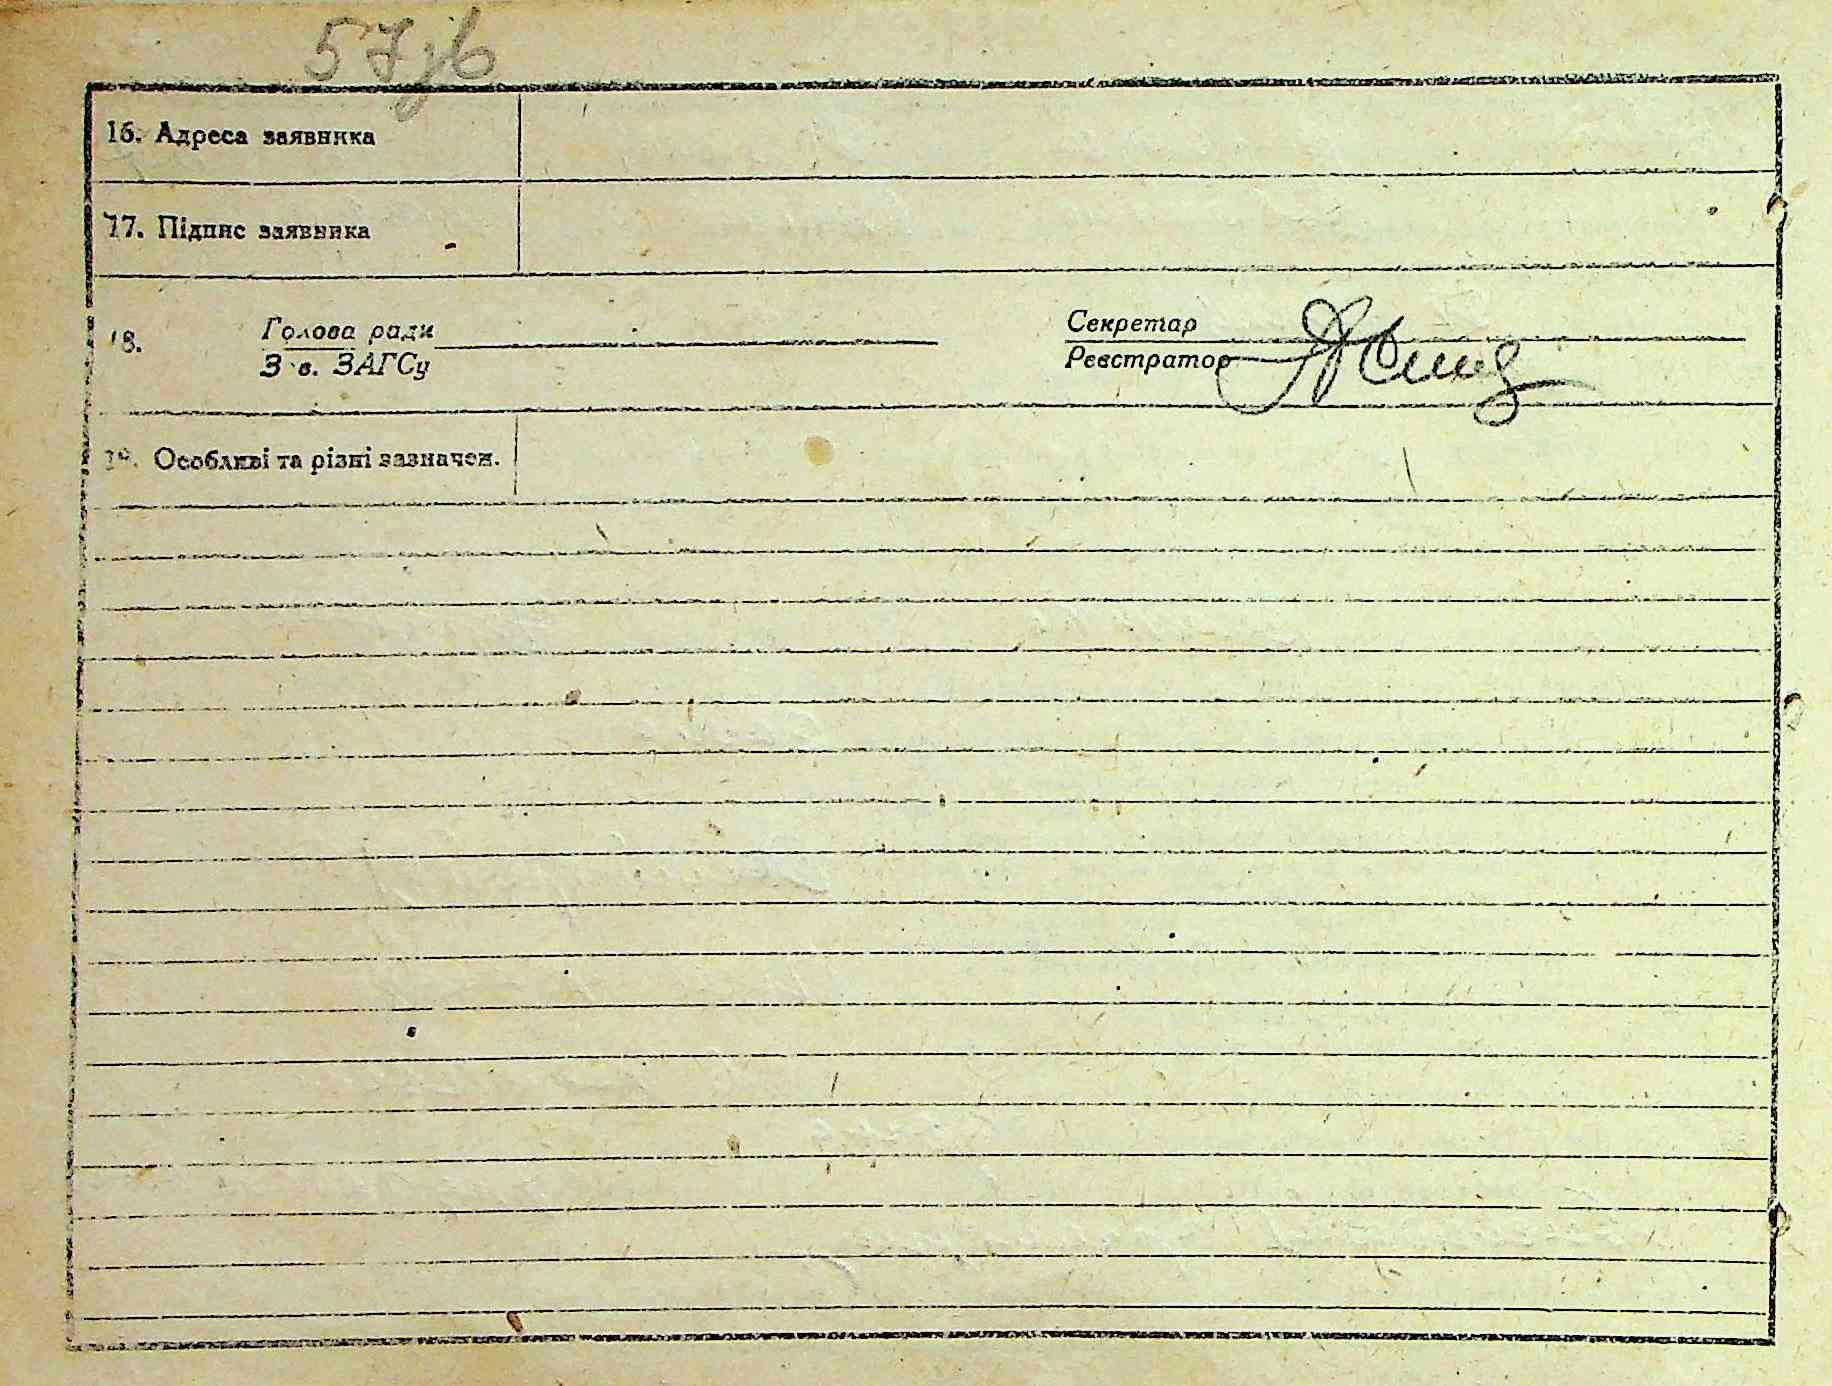 57зв
16. Адреса заявника
17. Підпис заявника
18. Голова ради Секретар
Зав. ЗАГСу Реєстратор
19. Особливі та різні зазначен.